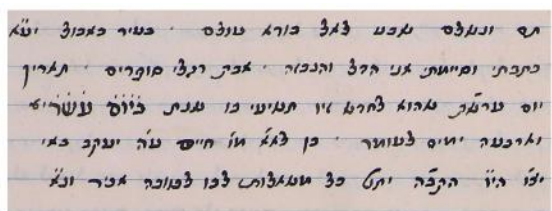 תם ונשלם שבח לאל בורא עולם . בעיר כאבול יע״א
כתבתי וסיימתי אני הדל והנבזה . אבק רגלי סופרים . תאריך
יום ערש״ק שהוא לחדש זיו תשיעי בו שנת ביום עשרים
וארבעה ימים לעומר . בן לא״א מו׳ חיים ע״ה יעקב
יצ״ו הי״ו הקב״ה יתן כל משאלות לבו לטובה אכי״ר